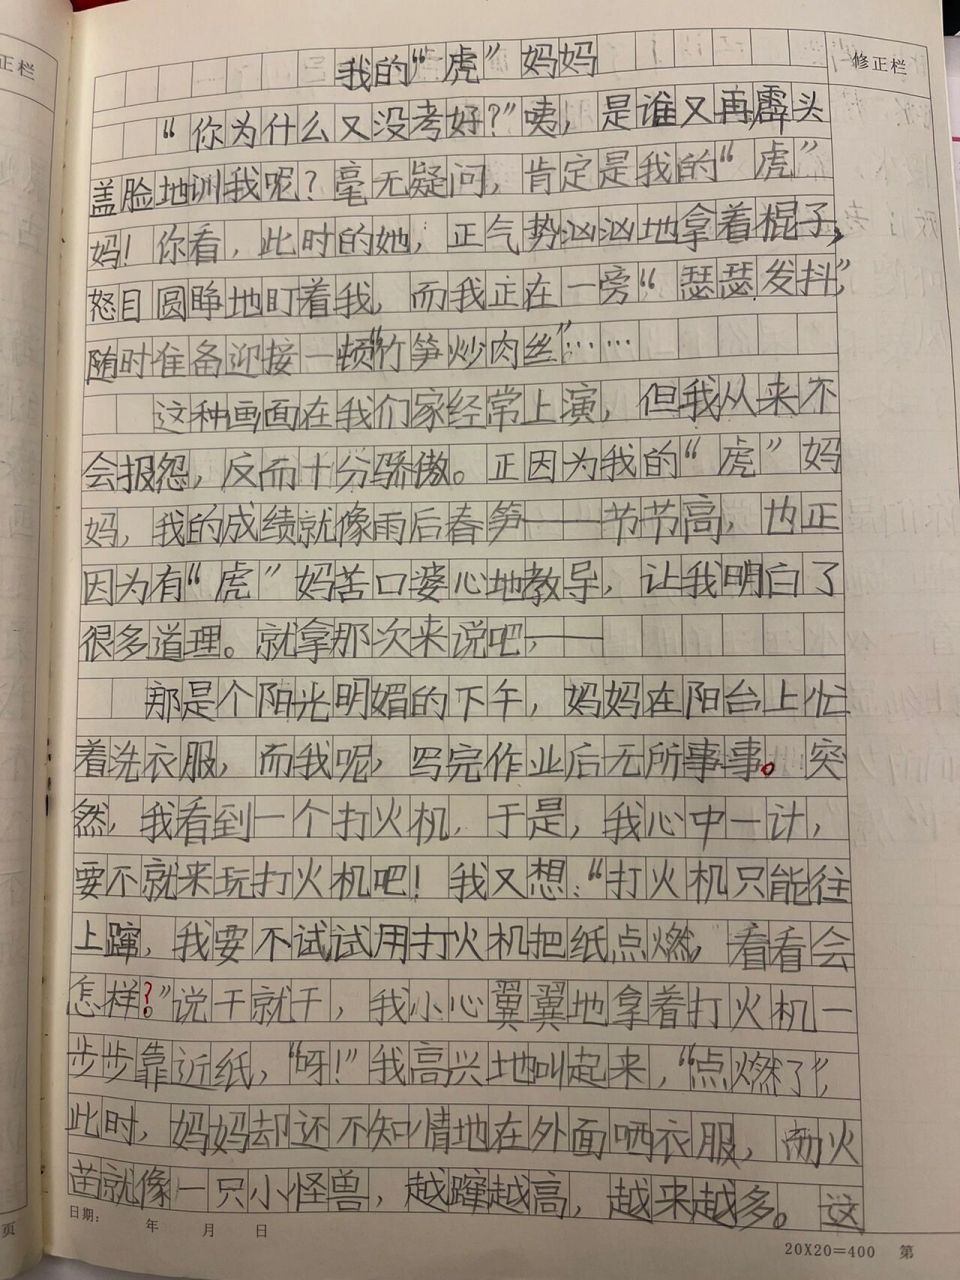 正栏
修正栏
我的“虎”妈妈
“你为什么又没考好？”咦，是谁又再霹头
盖脸地训我呢？毫无疑问，肯定是我的“虎”
妈！你看，此时的她，正气势汹汹地拿着棍子，
怒目圆睁地盯着我，而我正在一旁“瑟瑟发抖”
随时准备迎接一顿“竹笋炒肉丝”……
这种画面在我们家经常上演，但我从来不
会报怨，反而十分骄傲。正因为我的“虎”妈
妈，我的成绩就像雨后春笋——节节高，也正
因为有“虎”妈苦口婆心地教导，让我明白了
很多道理。就拿那次来说吧，——
那是个阳光明媚的下午，妈妈在阳台上忙
着洗衣服，而我呢，写完作业后无所事事。突
然，我看到一个打火机，于是，我心中一计，
要不就来玩打火机吧！我又想：“打火机只能往
上蹿，我要不试试用打火机把纸点燃，看看会
怎样？”说干就干，我小心翼翼地拿着打火机一
步步靠近纸，“呀！”我高兴地叫起来，“点燃了”，
此时，妈妈却还不知情地在外面晒衣服，而火
苗就像一只小怪兽，越蹿越高，越来越多。这
日期： 年 月 日
20X20=400 第
页